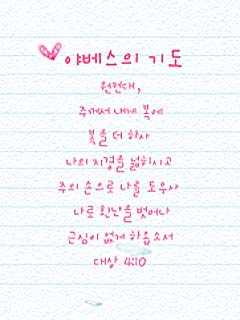 야베스의 기도
원컨대,
주께서 내게 복에
복을 더 하사
나의 지경을 넓히시고
주의 손으로 나를 도우사
나로 환난을 벗어나
근심이 없게 하옵소서
대상 4:10